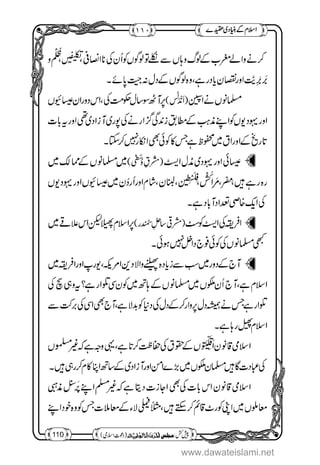 اسلام کے بنیادی عقیدے (۱۱۰)
کرنے والے مغرب کے لوگ وہاں سے نکلے تو لوگوں کو اُن کی ناانصافی
بَربَریّت اور نقصان یاد رہے، وہ لوگوں کے دل نہ جیت پائے۔
مسلمانوں نے اسپین (اُنْدُلُس) پر آٹھ سو سال حکومت کی، اس دوران عیسائیوں
اور یہودیوں کو اپنے مذہب کے مطابق زندگی گزارنے کی پوری آزادی تھی اور یہ بات
تاریخ کے اوراق میں محفوظ ہے جس کا کوئی بھی انکار نہیں کر سکتا۔
عیسائی اور یہودی مڈل ایسٹ (مشرقِ وُسْطیٰ) میں مسلمانوں کے ممالک میں
رہ رہے ہیں: مصر، مراکش، فلسطین، لبنان، شام اور اُردُن میں عیسائیوں اور یہودیوں
کی ایک خاصی تعداد آباد ہے۔
افریقہ کی ایسٹ کوسٹ (مشرقی ساحلِ سمندر) پر اسلام پھیلا لیکن اس علاقے میں
کبھی مسلمانوں کی کوئی فوج داخل نہیں ہوئی۔
آج کے دور میں سب سے زیادہ پھیلنے والا دین امریکہ، یورپ، اور افریقہ میں
اسلام ہے، آج اُن ملکوں میں مسلمانوں کے ہاتھ میں کون سی تلوار ہے؟ یہ وہی سچ کی
تلوار ہے جس نے ہمیشہ دل پر وار کر کے دل کی دنیا کو بدلا ہے، آج بھی اسی کی برکت سے
اسلام پھیل رہا ہے۔
اسلامی قانون اقلیتوں کے حقوق کی حفاظت کرتا ہے، یہی وجہ ہے کہ غیر مسلموں
کی عبادت گاہیں مسلمان ملکوں میں امن کے ساتھ اور آزادی سے اپنا کام کر رہی ہیں۔
اسلامی قانون اس بات کی بھی اجازت دیتا ہے کہ غیر مسلم اپنے پرسنل مذہبی
معاملوں میں اپنی کورٹ قائم کر سکتے ہیں، مثلاً فیملی لاء کے معاملات جس کو وہ خود اپنے
110
www.dawateislami.net